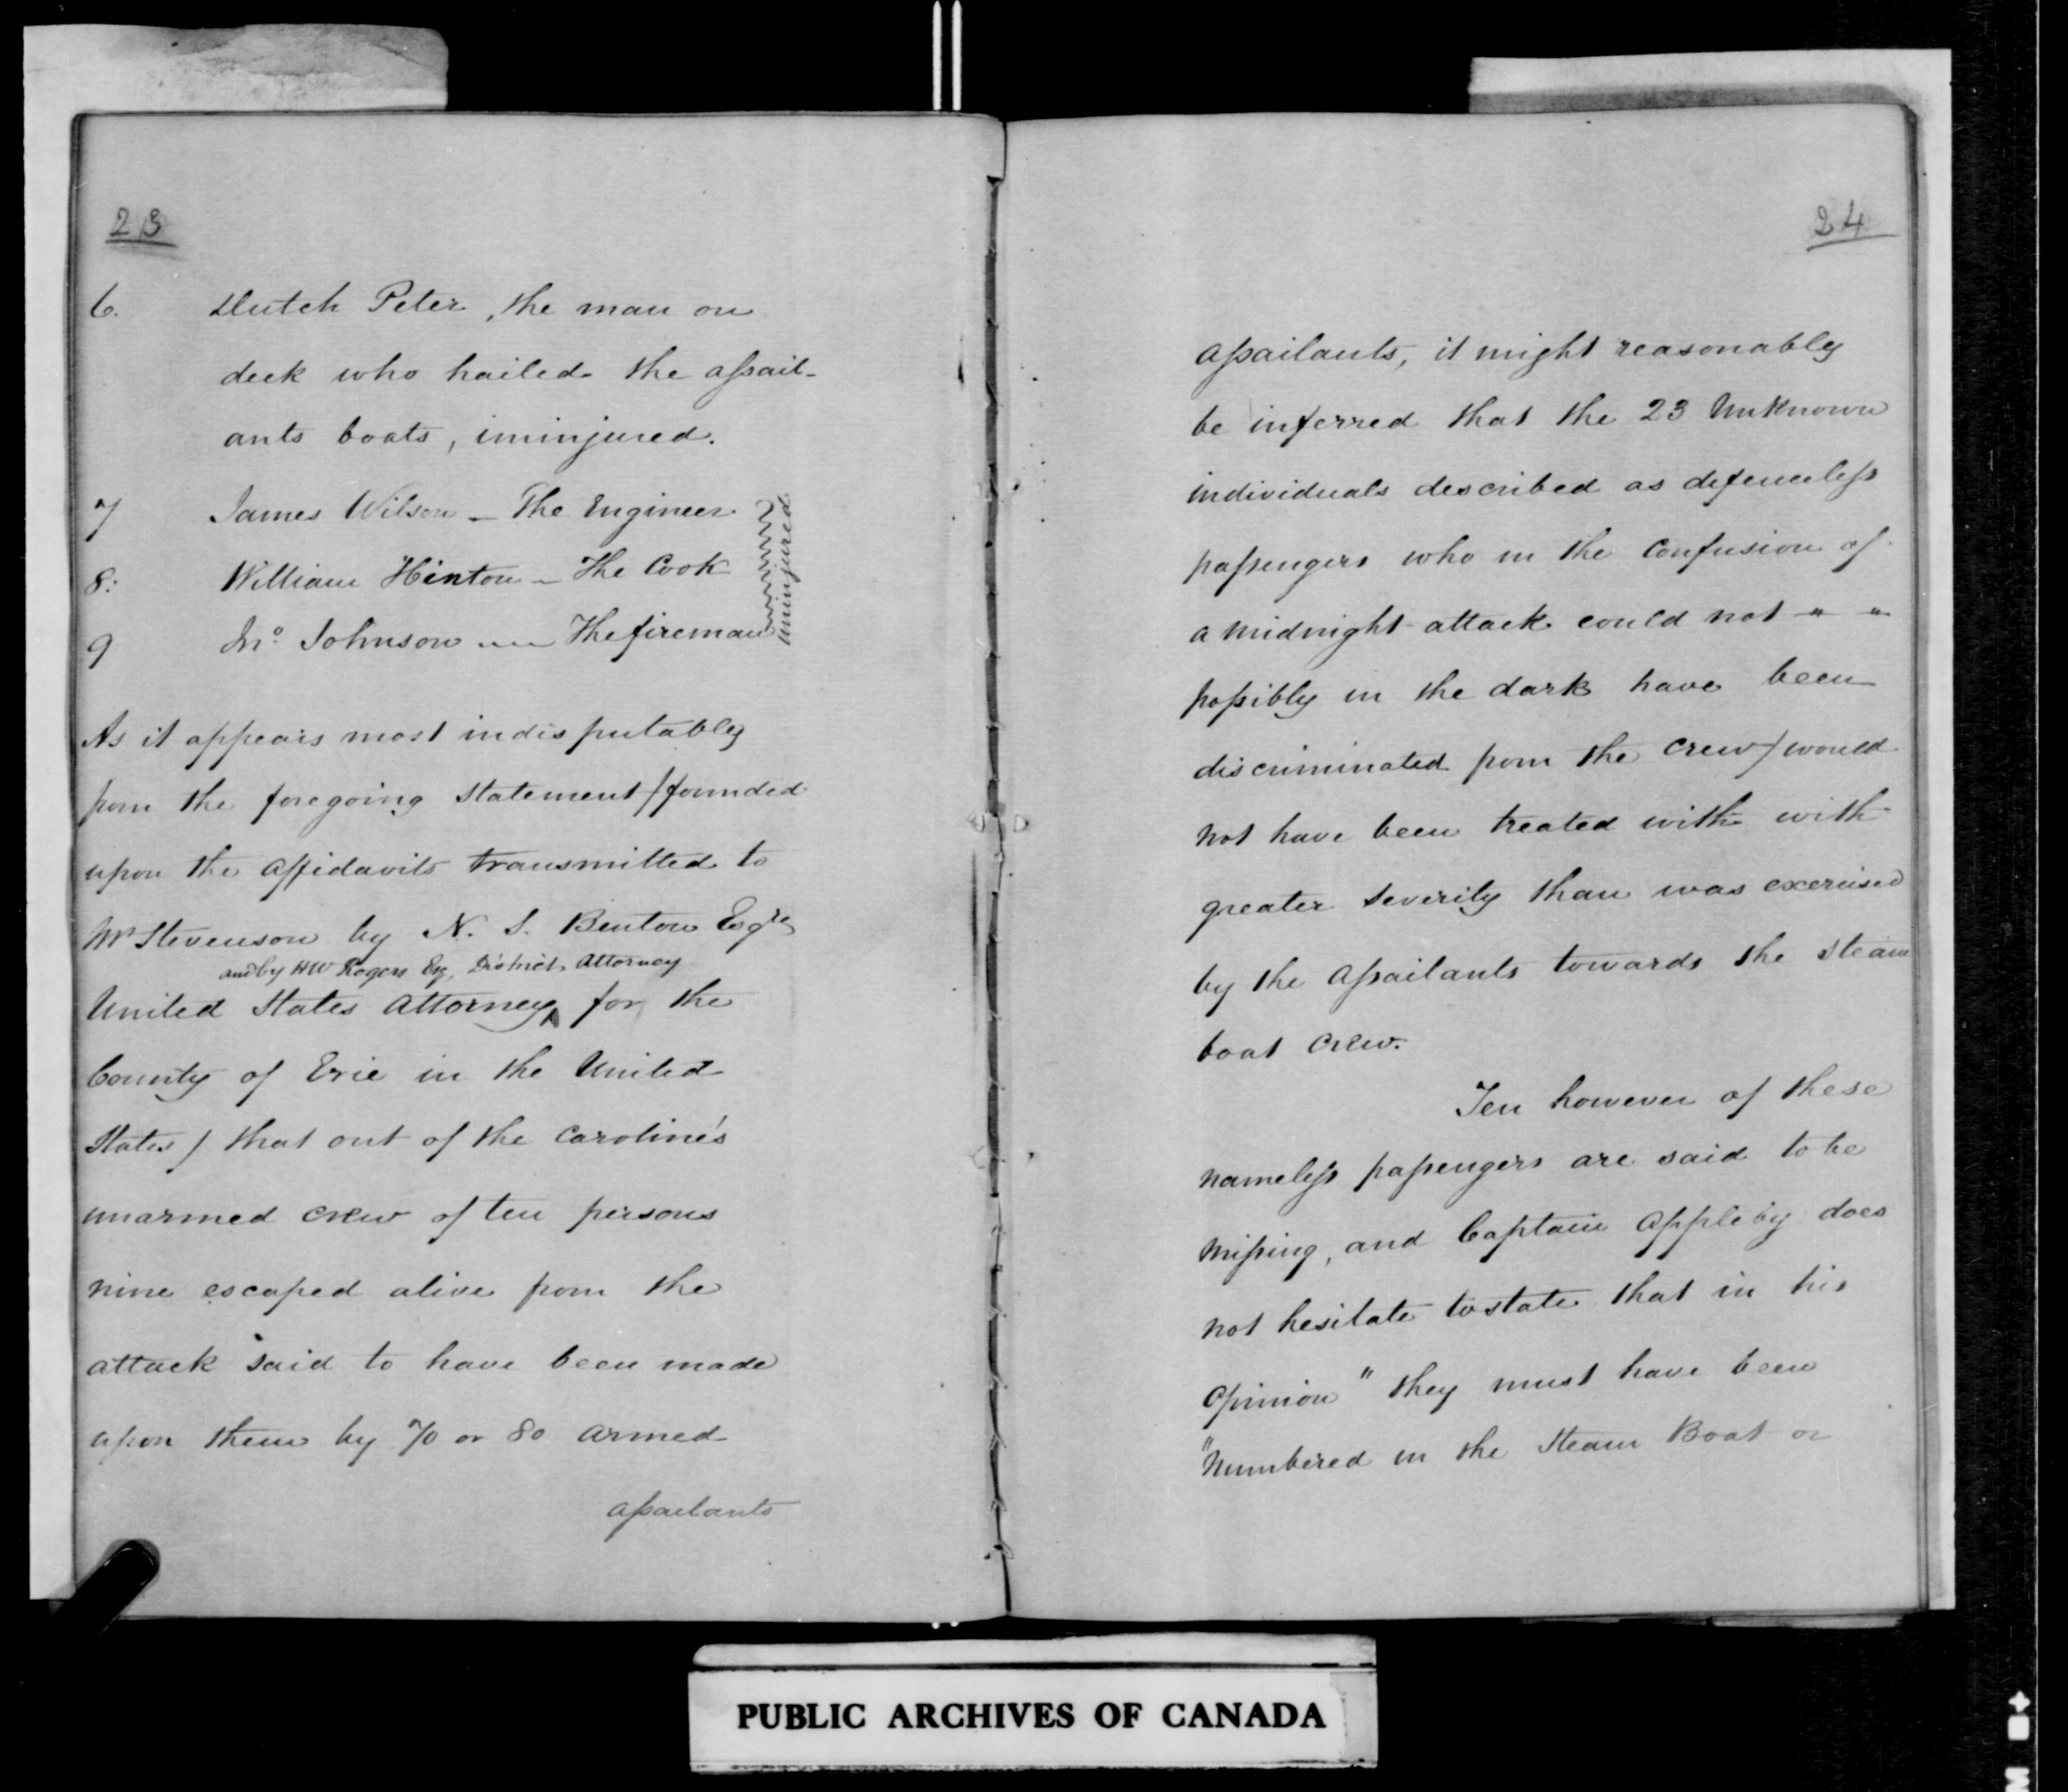 23
6. Dutch Peter, the man on
deck who hailed the assail-
ants boats, uninjured.
7 James Wilson - The Engineer
8: William Hinton - The Cook
9 Jno. Johnson — The fireman
uninjured
As it appears most indisputably
from the foregoing statement / founded
upon the affidavits transmitted to
Mr Stevenson by N. S. Benton Esqre
and by HW Rogers Esq, District Attorney
United States Attorney ‸ for the
County of Erie in the United
States / that out of the Caroline's
unarmed crew of ten persons
nine escaped alive from the
attack said to have been made
upon them by 70 or 80 armed
assailants
24
assailants, it might reasonably
be inferred that the 23 Unknown
individuals described as defenceless
passengers who in the Confusion of
a midnight attack could not " "
possibly in the dark have been
discriminated from the crew / would
not have been treated with with
greater severity than was exercised
by the assailants towards the steam
boat crew.
Ten however of these
nameless passengers are said to be
missing, and Captain Appleby does
not hesitate to state that in his
opinion " they must have been
"numbered in the Steam Boat or
PUBLIC ARCHIVES OF CANADA